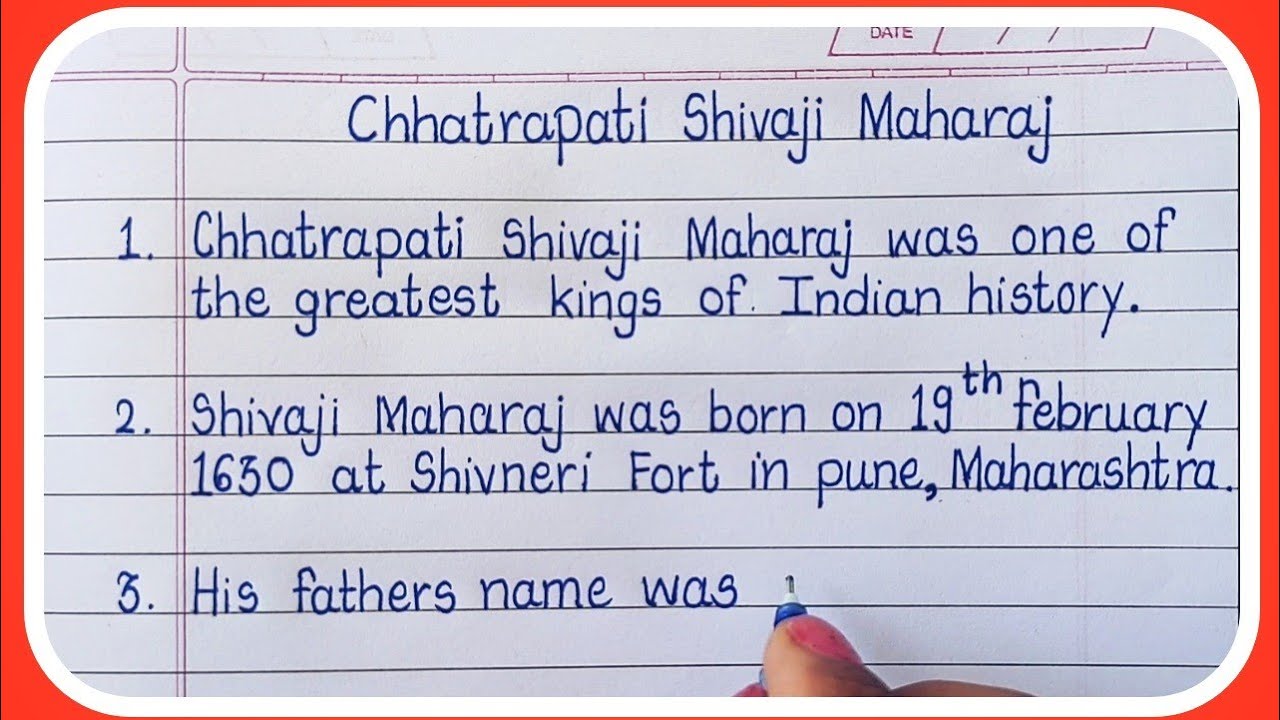 DATE
Chhatrapati Shivaji Maharaj
1. Chhatrapati Shivaji Maharaj was one of
the greatest kings of Indian history.
2. Shivaji Maharaj was born on 19th february
1630 at Shivneri Fort in pune, Maharashtra.
3. His fathers name was